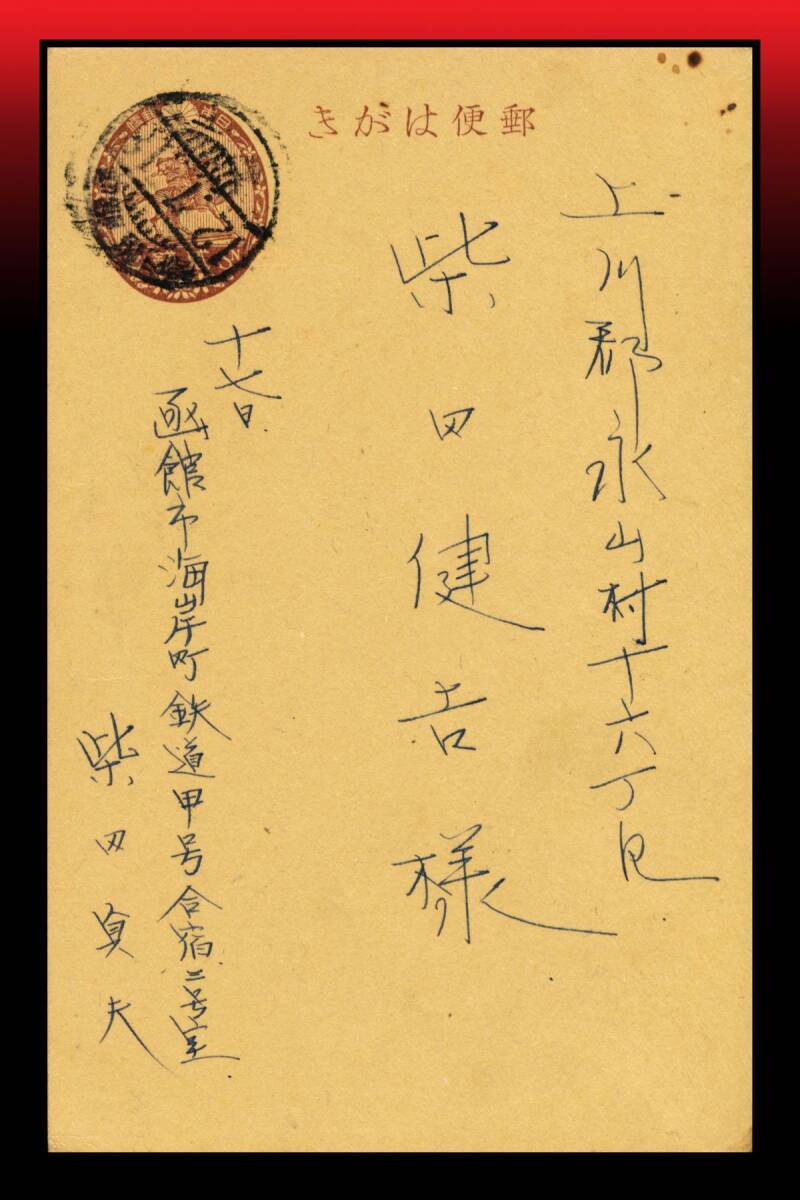 郵便はがき
上川郡永山村十六丁目
柴田健吉様
十七日
函館市海岸町鉄道甲号合宿二号室
柴田貞夫